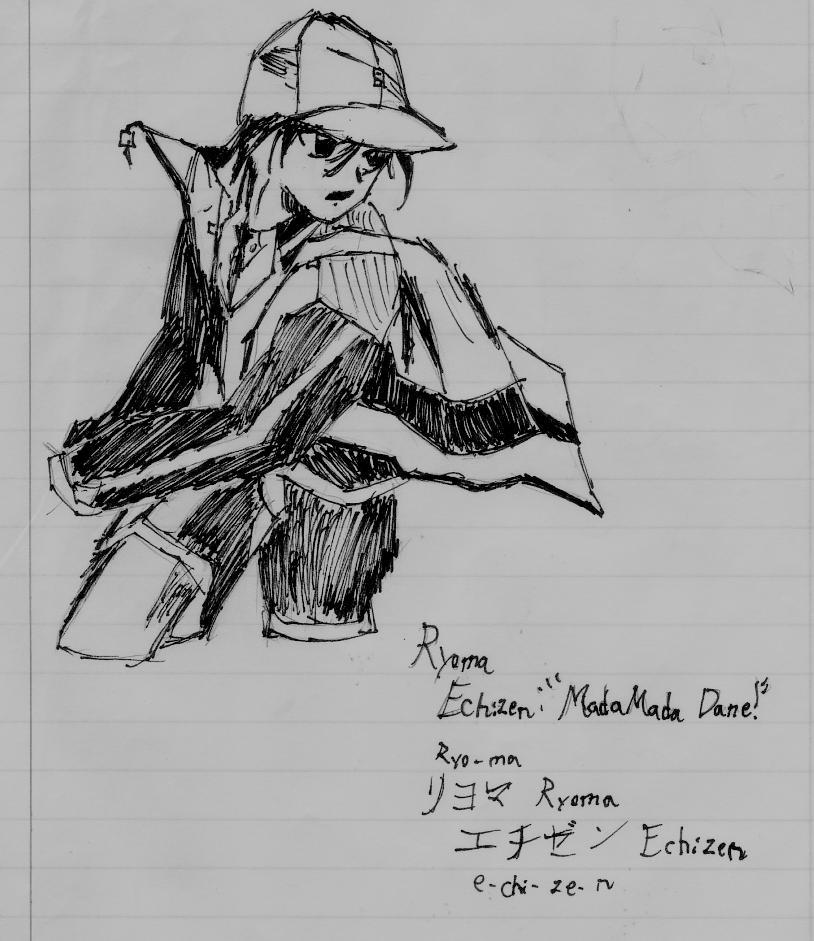 Ryoma
Echizen: "MadaMada Dane!"
Ryo-ma
リヨマ Ryoma
エチゼン Echizen
e-chi-ze-n